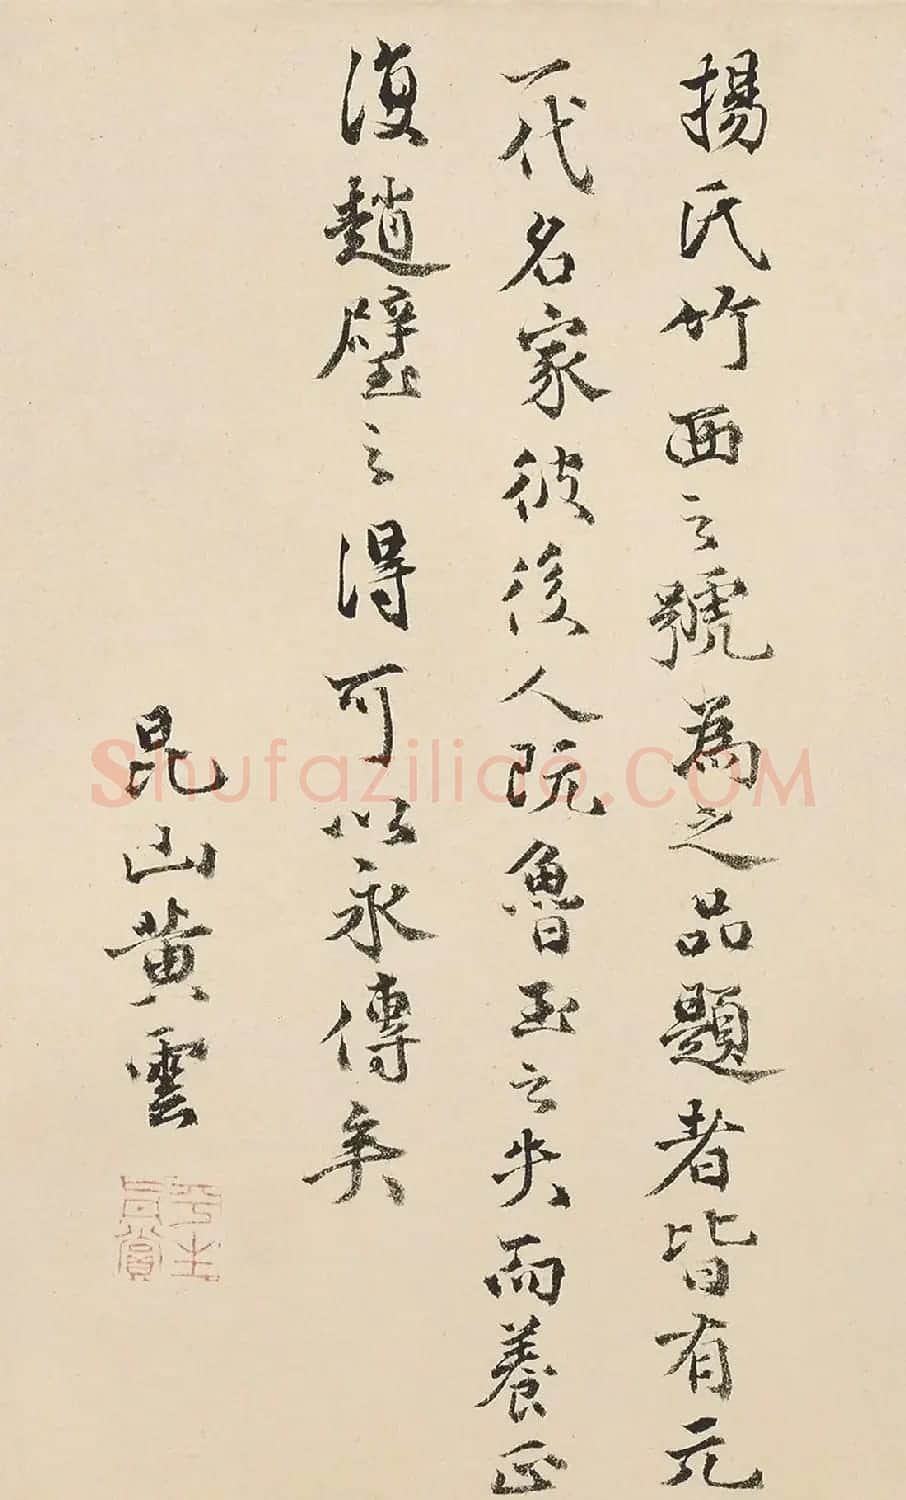 楊氏竹西之號為之品題者皆有元
一代名家彼後人既魯玉之失而養正
復趙璧之得可以永傳矣
昆山黃雲
Shufaziliao.COM